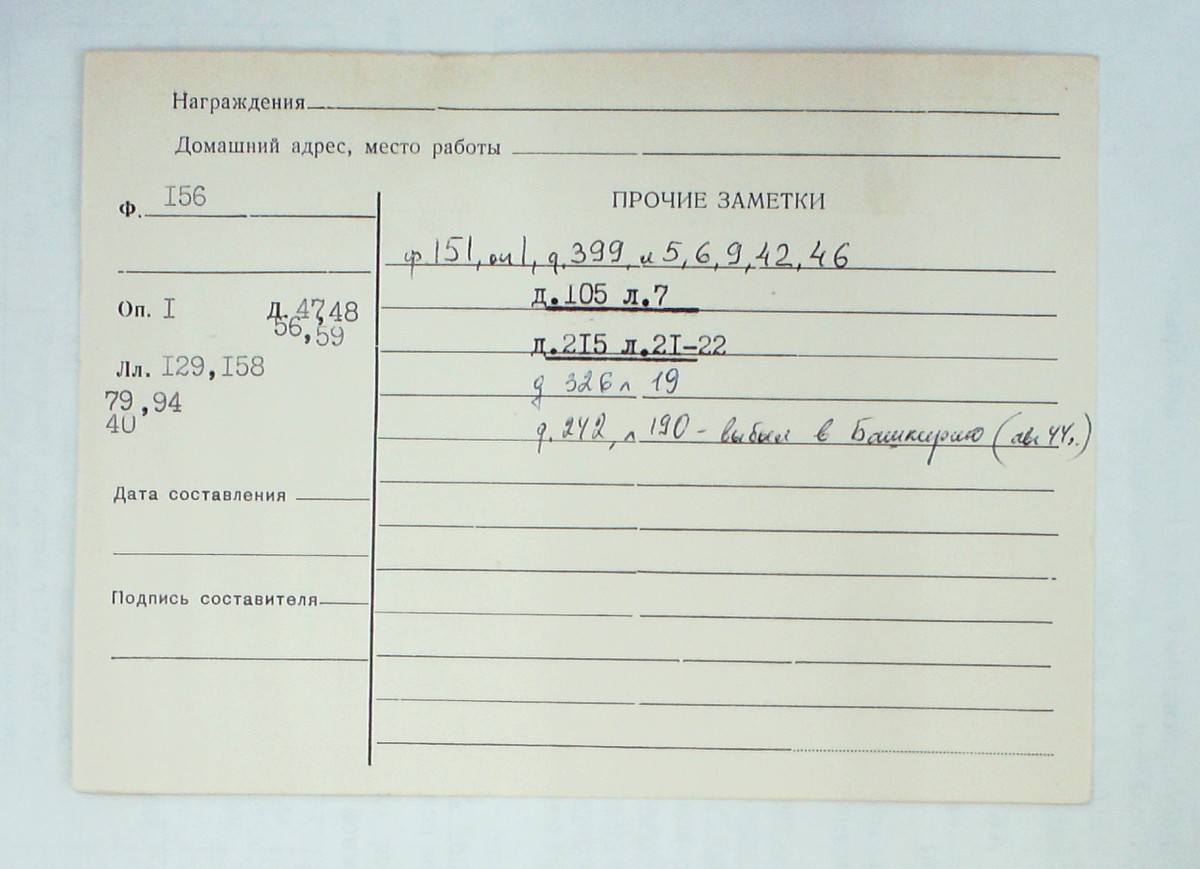 Награждения
Домашний адрес, место работы
Ф. I56
Оп. I Д. 47,48
56,59
Лл. I29,I58
79,94
40
Дата составления
Подпись составителя
ПРОЧИЕ ЗАМЕТКИ
ф 151, оп 1, д. 399, л 5, 6, 9, 42, 46
д.105 л.7
д.2I5 л.2I-22
д 326 л 19
д. 242, л 190 - выбыл в Башкирию ( 44г.)